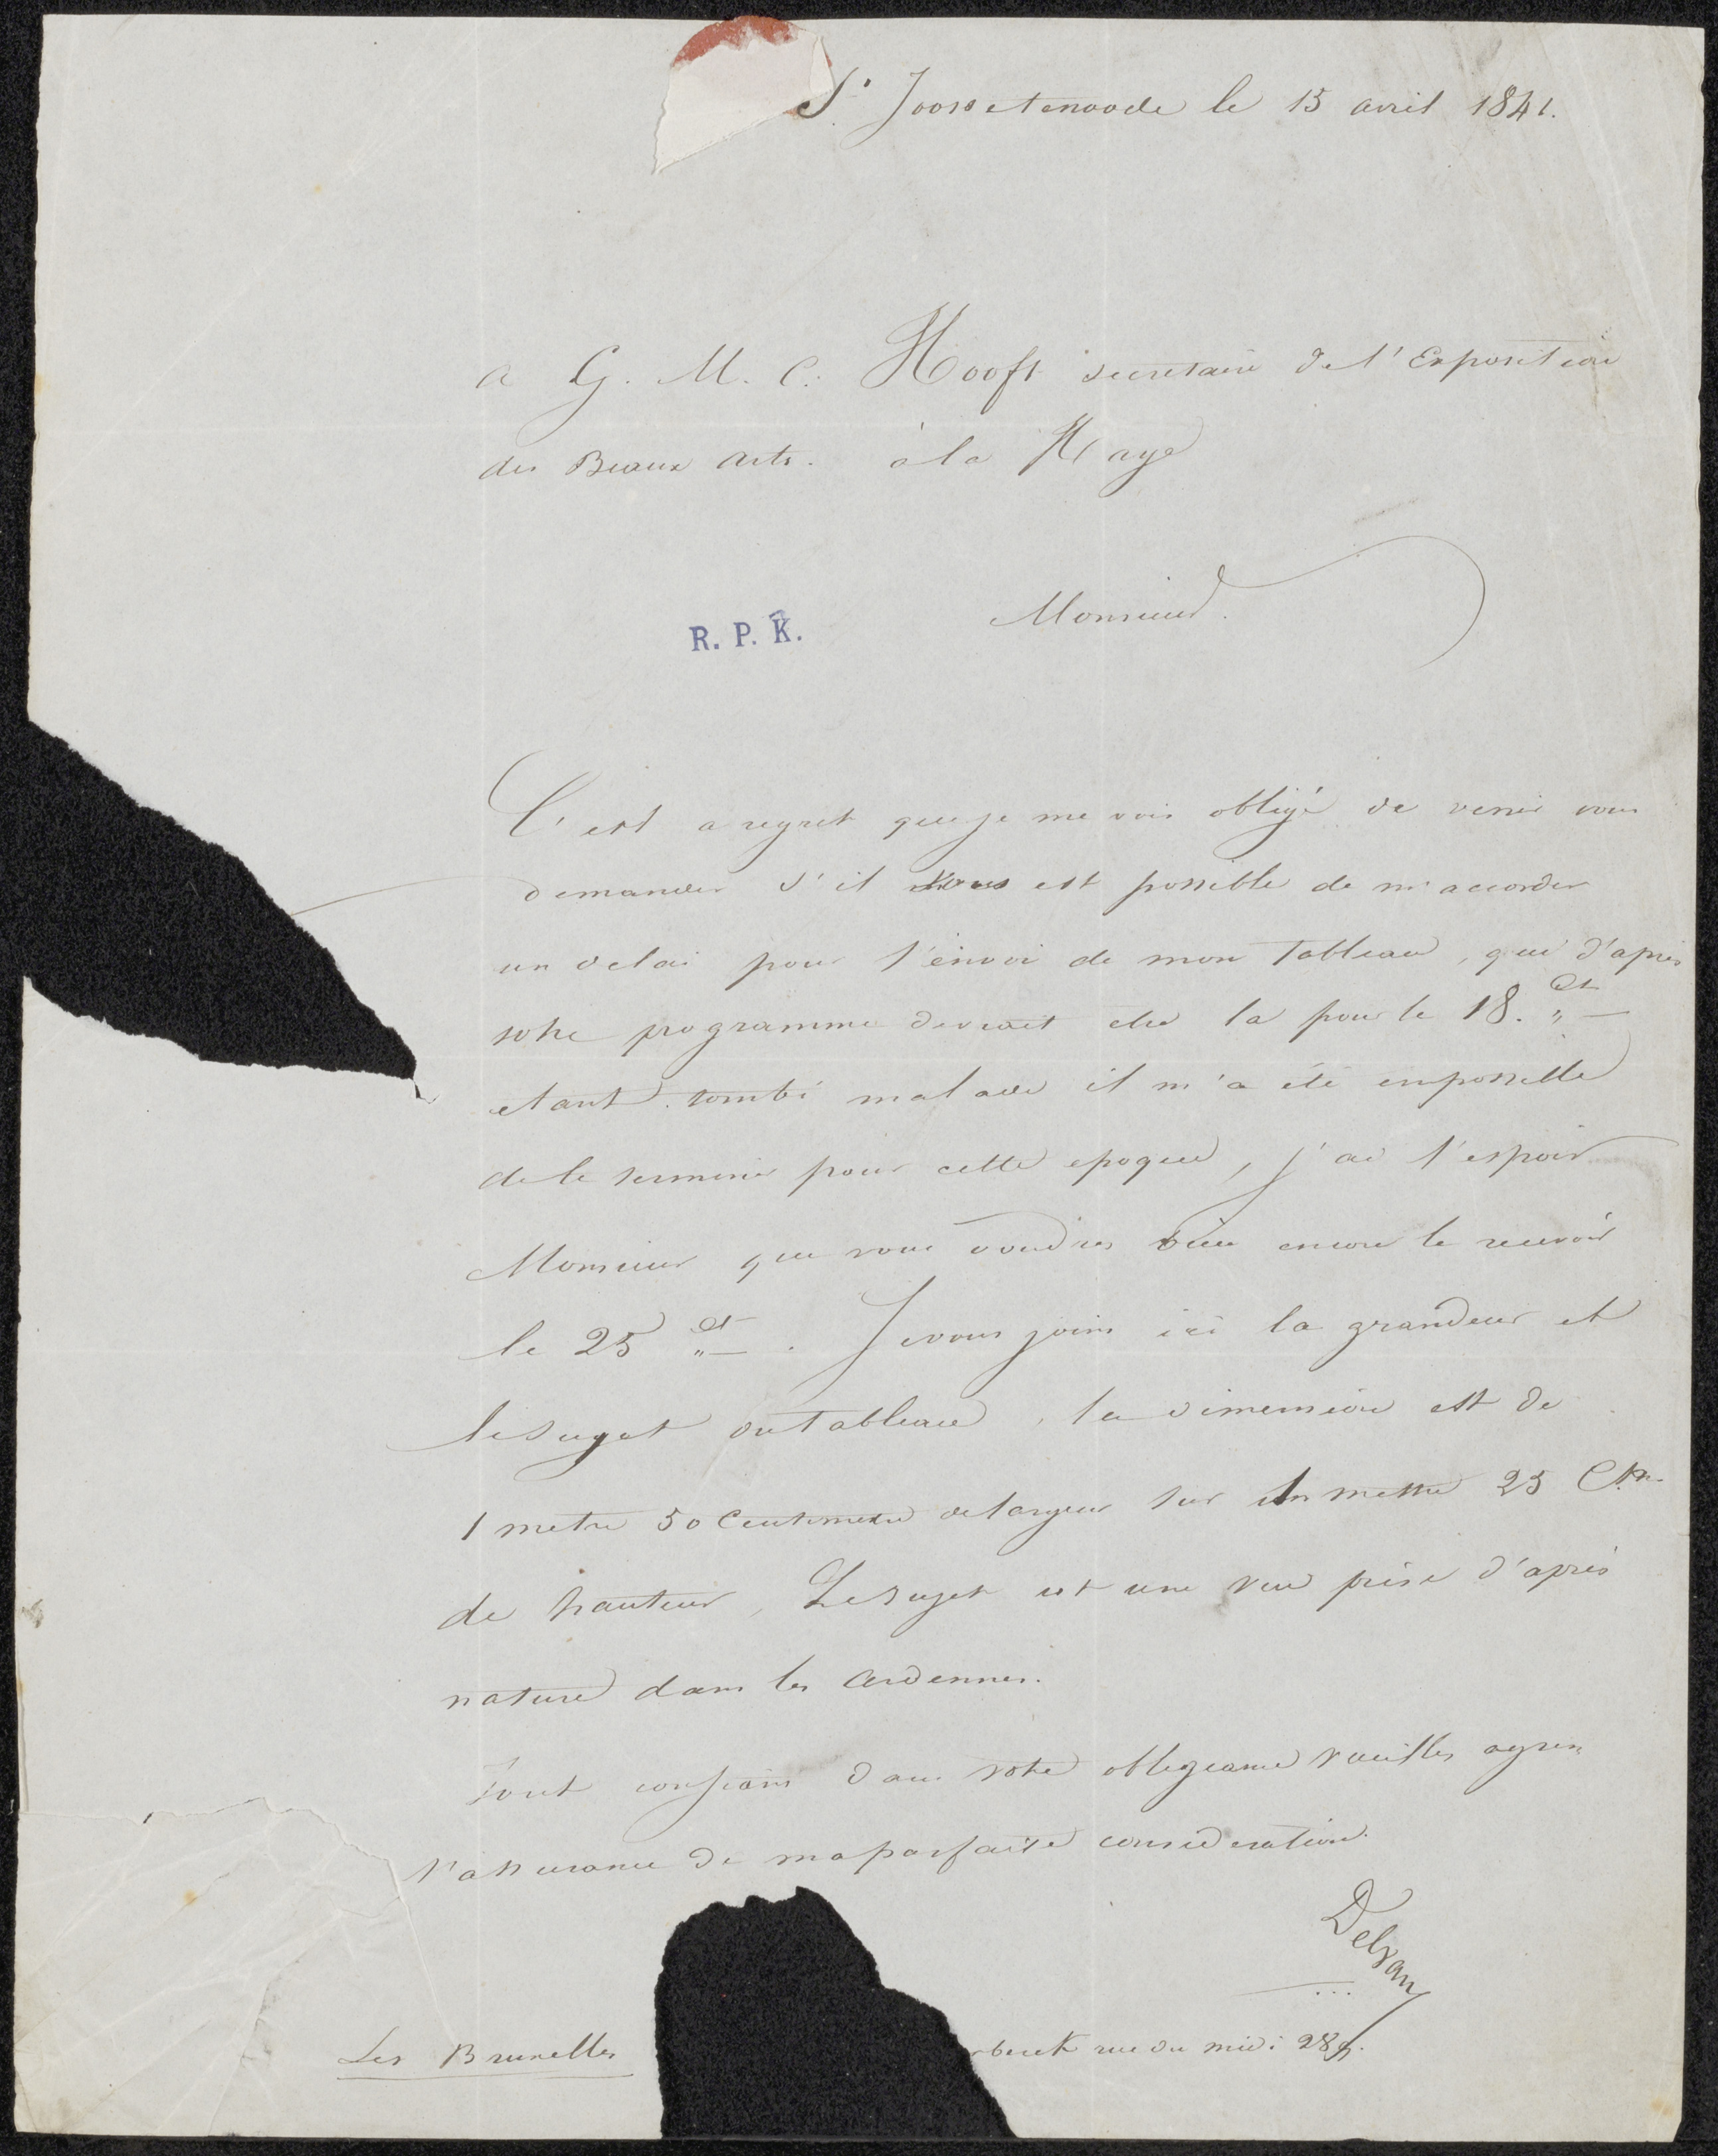 St. Joossetenoode le 15 avril 1841.
a G. M. C. Hooft secretaire de l'Exposition
des Beaux Arts. à la Haye
Monsieur.
R. P. K.
C'est a regret que je me vois obligé de venir vous
demander s'il vous est possible de m'accorder
un delai pour l'envoi de mon tableau, qui d'après
votre programme devrait etre la pour le 18. ct
etant tombé malade il m'a été impossible
de le terminer pour cette epoque, j'ai l'espoir
Monsieur que vous voudrez bien encore le recevoir
le 25 ct. Je vous joins ici la grandeur et
le sujet du tableau, la dimension est de
1 metre 50 Centimetre de largeur sur un mettre 25 Ctm.
de hauteur, Le sujet est une vue prise d'après
nature dans les Ardennes.
Tout confiant dans votre obligeance veuillez agreer
l'assurance de ma parfaite consideration.
Delvaux
Les Bruxelles
rbeeck rue du midi 28